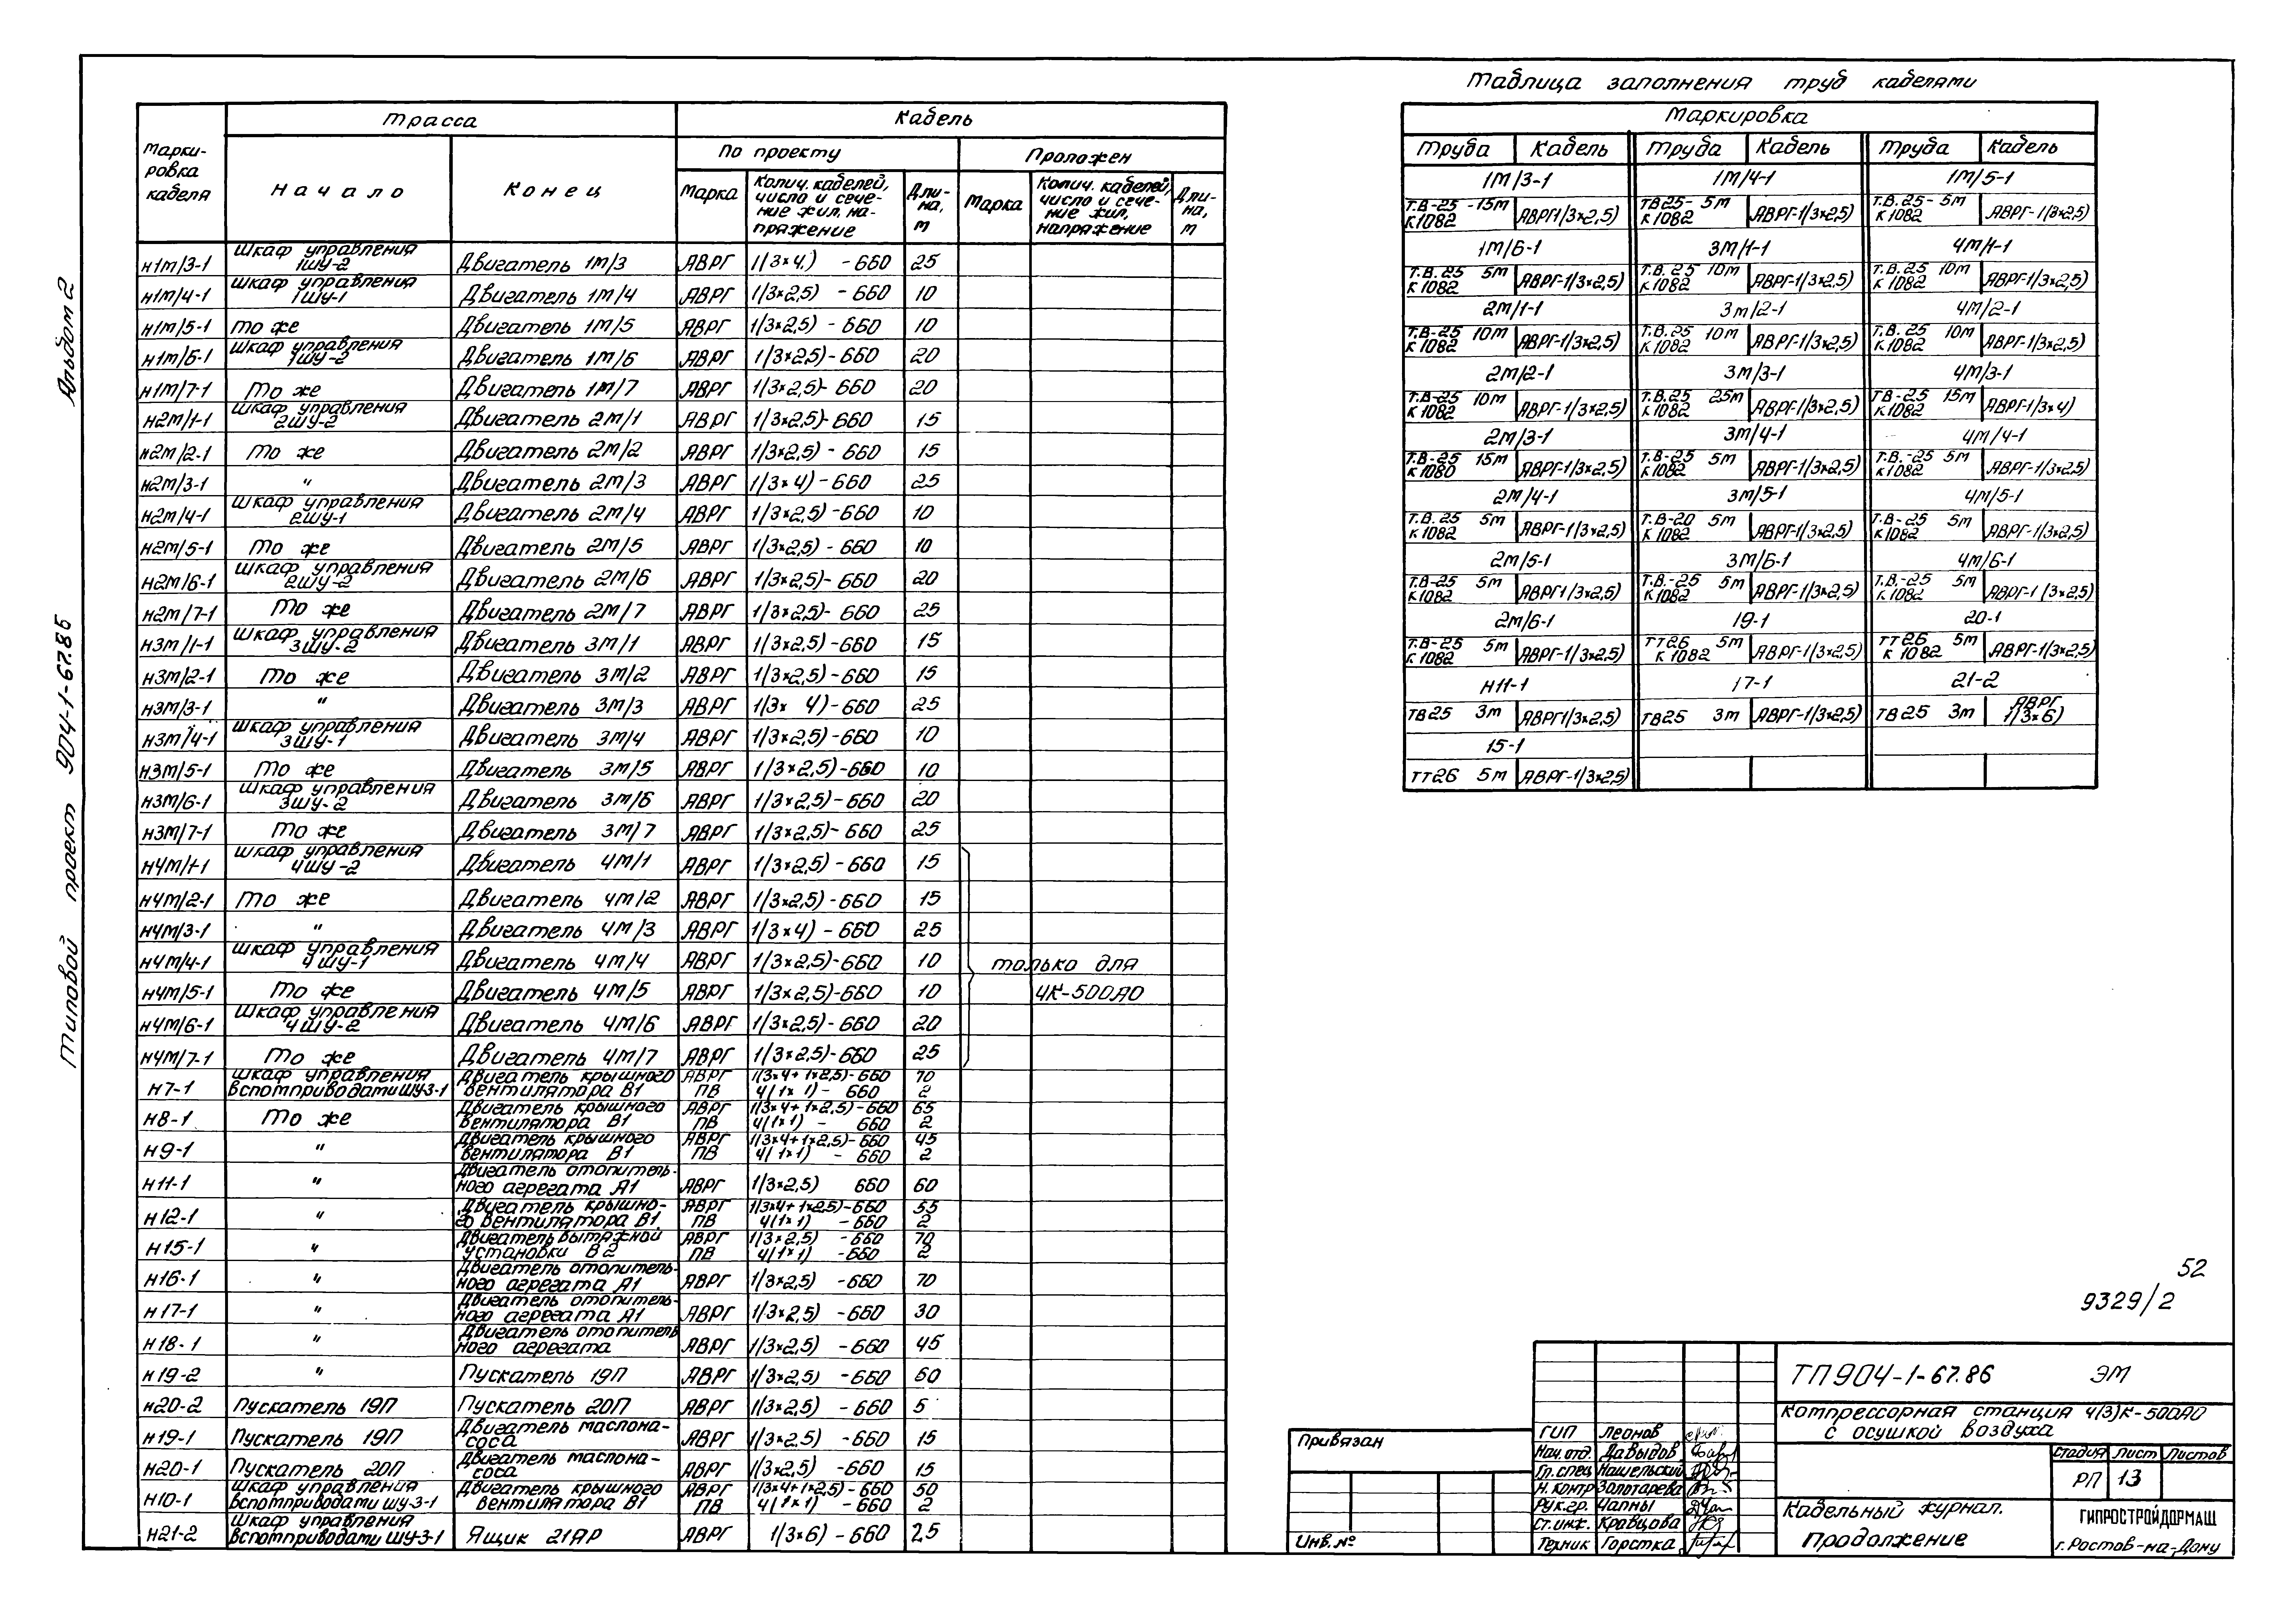 Альбом 2
Типовой проект 904-1-67.86
Марки-
ровка
кабеля
Трасса
Кабель
Начало
Конец
По проекту
Проложен
Марка
Колич. кабелей,
число и сече-
ние жил, на-
пряжение
Дли-
на,
м
Марка
Колич. кабелей,
число и сече-
ние жил,
напряжение
Дли-
на,
м
Н1М/3-1 Шкаф управления 1ШУ-2 Двигатель 1М/3 АВРГ 1(3×4) -660 25
Н1М/4-1 Шкаф управления 1ШУ-1 Двигатель 1М/4 АВРГ 1(3×2,5) -660 10
Н1М/5-1 То же Двигатель 1М/5 АВРГ 1(3×2,5) -660 10
Н1М/6-1 Шкаф управления 1ШУ-2 Двигатель 1М/6 АВРГ 1(3×2,5)-660 20
Н1М/7-1 То же Двигатель 1М/7 АВРГ 1(3×2,5)-660 20
Н2М/1-1 Шкаф управления 2ШУ-2 Двигатель 2М/1 АВРГ 1(3×2,5)-660 15
Н2М/2-1 То же Двигатель 2М/2 АВРГ 1(3×2,5)-660 15
Н2М/3-1 " Двигатель 2М/3 АВРГ 1(3×4)-660 25
Н2М/4-1 Шкаф управления 2ШУ-1 Двигатель 2М/4 АВРГ 1(3×2,5)-660 10
Н2М/5-1 То же Двигатель 2М/5 АВРГ 1(3×2,5)-660 10
Н2М/6-1 Шкаф управления 2ШУ-2 Двигатель 2М/6 АВРГ 1(3×2,5)-660 20
Н2М/7-1 То же Двигатель 2М/7 АВРГ 1(3×2,5)-660 25
Н3М/1-1 Шкаф управления 3ШУ-2 Двигатель 3М/1 АВРГ 1(3×2,5)-660 15
Н3М/2-1 То же Двигатель 3М/2 АВРГ 1(3×2,5)-660 15
Н3М/3-1 " Двигатель 3М/3 АВРГ 1(3× 4)-660 25
Н3М/4-1 Шкаф управления 3ШУ-1 Двигатель 3М/4 АВРГ 1(3×2,5)-660 10
Н3М/5-1 То же Двигатель 3М/5 АВРГ 1(3×2,5)-660 10
Н3М/6-1 Шкаф управления 3ШУ-2 Двигатель 3М/6 АВРГ 1(3×2,5)-660 20
Н3М/7-1 То же Двигатель 3М/7 АВРГ 1(3×2,5)-660 25
Н4М/1-1 Шкаф управления 4ШУ-2 Двигатель 4М/1 АВРГ 1(3×2,5)-660 15
Н4М/2-1 То же Двигатель 4М/2 АВРГ 1(3×2,5)-660 15
Н4М/3-1 " Двигатель 4М/3 АВРГ 1(3×4)-660 25
Н4М/4-1 Шкаф управления 4ШУ-1 Двигатель 4М/4 АВРГ 1(3×2,5)-660 10 только для
Н4М/5-1 То же Двигатель 4М/5 АВРГ 1(3×2,5)-660 10 4К-500АО
Н4М/6-1 Шкаф управления 4ШУ-2 Двигатель 4М/6 АВРГ 1(3×2,5)-660 20
Н4М/7-1 То же Двигатель 4М/7 АВРГ 1(3×2,5)-660 25
Н7-1 Шкаф управления Двигатель крышного АВРГ 1(3×4+1×2,5)-660 70
вспомприводами ШУ-3-1 вентилятора В1 ПВ 4(1×1)-660 2
Н8-1 То же Двигатель крышного АВРГ 1(3×4+1×2,5)-660 65
вентилятора В1 ПВ 4(1×1) - 660 2
Н9-1 " Двигатель крышного АВРГ 1(3×4+1×2,5)-660 45
вентилятора В1 ПВ 4(1×1) - 660 2
Н11-1 " Двигатель отопитель-
ного агрегата А1 АВРГ 1(3×2,5) 660 60
Н12-1 " Двигатель крышно- АВРГ 1(3×4+1×2,5)-660 55
го вентилятора В1 ПВ 4(1×1) -660 2
Н15-1 " Двигатель вытяжной АВРГ 1(3×2,5) -660 70
установки В2 ПВ 4(1×1) -660 2
Н16-1 " Двигатель отопитель-
ного агрегата А1 АВРГ 1(3×2,5) -660 70
Н17-1 " Двигатель отопитель-
ного агрегата А1 АВРГ 1(3×2,5) -660 30
Н18-1 " Двигатель отопитель
ного агрегата АВРГ 1(3×2,5) -660 45
Н19-2 " Пускатель 19П АВРГ 1(3×2,5) -660 60
Н20-2 Пускатель 19П Пускатель 20П АВРГ 1(3×2,5) -660 5
Н19-1 Пускатель 19П Двигатель маслона-
соса АВРГ 1(3×2,5) -660 15
Н20-1 Пускатель 20П Двигатель маслона-
соса АВРГ 1(3×2,5) -660 15
Н10-1 Шкаф управления Двигатель крышного АВРГ 1(3×4+1×2,5)-660 50
вспомприводами ШУ-3-1 вентилятора В1 ПВ 4(1×1) -660 2
Н21-2 Шкаф управления
вспомприводами ШУ-3-1 Ящик 21ЯР АВРГ 1(3×6)-660 25
Таблица заполнения труб кабелями
Маркировка
Труба Кабель Труба Кабель Труба Кабель
1М/3-1 1М/4-1 1М/5-1
Т.В-25 -15м АВРГ1(3×2,5) ТВ25- 5м АВРГ-1(3×2,5) Т.В.25- 5м АВРГ-1(3×2,5)
К1082 К1082 К1082
1М/6-1 3М/1-1 4М/1-1
Т.В.25 5м АВРГ-1(3×2,5) Т.В.25 10м АВРГ-1(3×2,5) Т.В.25 10м АВРГ-1(3×2,5)
К1082 К1082 К1082
2М/1-1 3М/2-1 4М/2-1
Т.В-25 10м АВРГ-1(3×2,5) Т.В.25 10м АВРГ-1(3×2,5) Т.В.25 10м АВРГ-1(3×2,5)
К1082 К1082 К1082
2М/2-1 3М/3-1 4М/3-1
Т.В-25 10м АВРГ-1(3×2,5) Т.В.25 25м АВРГ-1(3×2,5) ТВ-25 15м АВРГ-1(3×4)
К1082 К1082 К1082
2М/3-1 3М/4-1 4М/4-1
Т.В-25 15м АВРГ-1(3×2,5) Т.В-25 5м АВРГ-1(3×2,5) Т.В.-25 5м АВРГ-1(3×2,5)
К1080 К1082 К1082
2М/4-1 3М/5-1 4М/5-1
Т.В.25 5м АВРГ-1(3×2,5) Т.В-20 5м АВРГ-1(3×2,5) Т.В-25 5м АВРГ-1(3×2,5)
К1082 К1082 К1082
2М/5-1 3М/6-1 4М/6-1
Т.В-25 5м АВРГ1(3×2,5) Т.В.-25 5м АВРГ-1(3×2,5) Т.В.-25 5м АВРГ-1(3×2,5)
К1082 К1082 К1082
2М/6-1 19-1 20-1
Т.В-25 5м АВРГ-1(3×2,5) ТТ26 5м АВРГ-1(3×2,5) ТТ26 5м АВРГ-1(3×2,5)
К1082 К1082 К1082
Н11-1 17-1 21-2
ТВ25 3м АВРГ1(3×2,5) ТВ25 3м АВРГ-1(3×2,5) ТВ25 3м АВРГ
1(3×6)
15-1
ТТ26 5м АВРГ-1(3×2,5)
52
9329/2
Привязан
Инв.№
ГИП Леонов
Нач.отд. Давыдов
Гл.спец Нашельский
Н.контр Золотарева
Рук.гр. Чапны
Ст.инж. Кравцова
Техник Горстка
ТП904-1-67.86 ЭМ
Компрессорная станция 4(3)К-500АО
с осушкой воздуха
Стадия Лист Листов
РП 13
Кабельный журнал.
Продолжение
ГИПРОСТРОЙДОРМАШ
г.Ростов-на-Дону